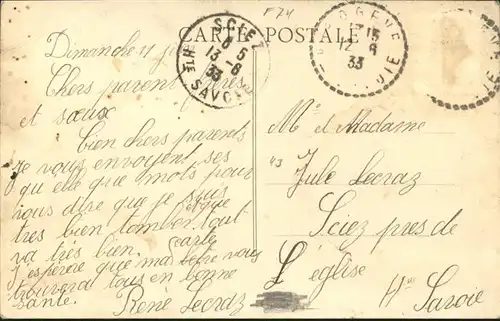 F 74
CARTE POSTALE
SCIEZ
6 5
13 - 6
33
HTE SAVOIE
BOGEVE
1715
12 - 6
33
Dimanche 11
Chers parents
et sœurs
bien chers parents
Je vous envoyent ses
qu elle que mots pour
vous dire que je suis
tres bien tomber et que tout
va très bien.
J'espère que ma carte vous
trouvera tous en bonne
santé. René Lecraz
Mr et Madame
Jule Lecraz
Sciez pres de
L'église
Hte Savoie